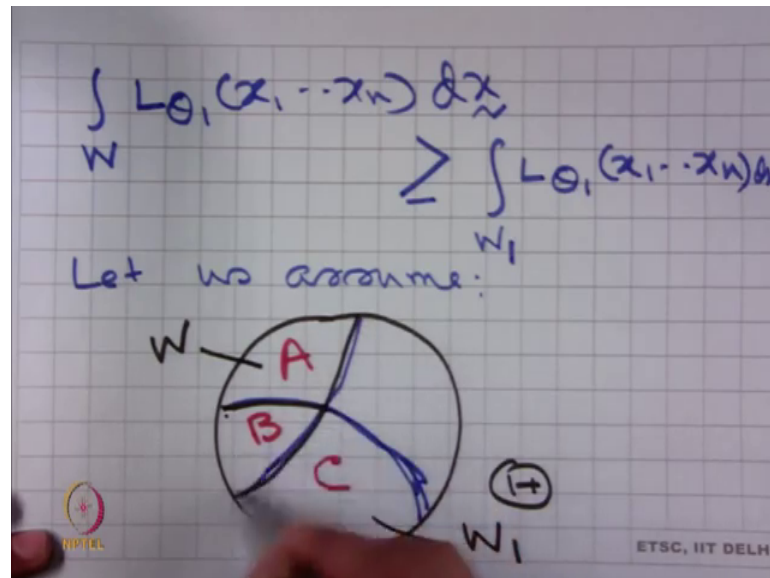 ∫ L_θ₁(x₁ ‐‐ xₙ) dx̰
W
≥ ∫ L_θ₁(x₁ ‐‐ xₙ) d
W₁
Let us assume:
W
A
B
C
17
W₁
NPTEL
ETSC, IIT DELH